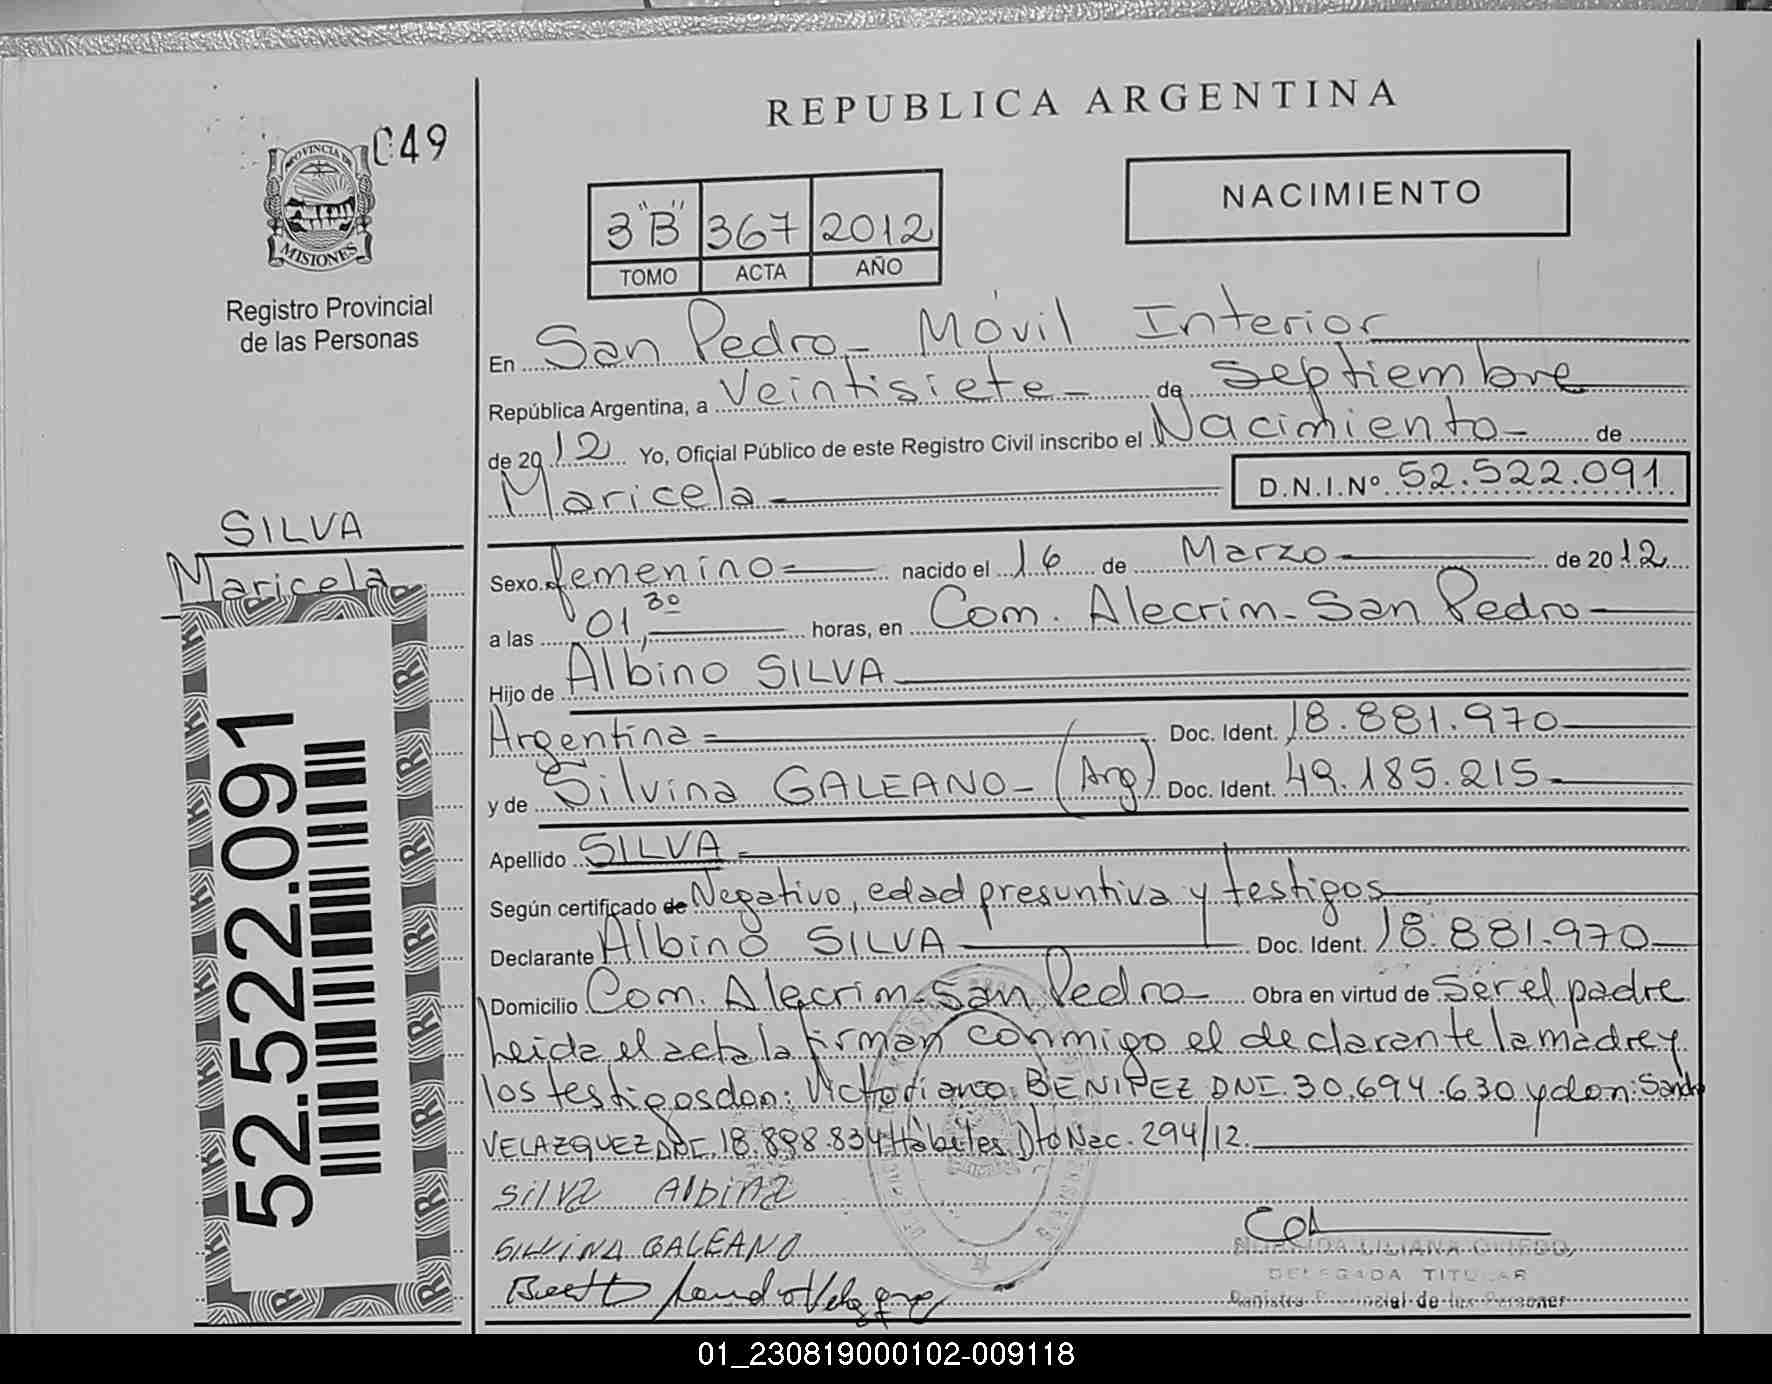 REPUBLICA ARGENTINA
049
PROVINCIA DE
MISIONES
Registro Provincial
de las Personas
NACIMIENTO
3"B" 367 2012
TOMO ACTA AÑO
En San Pedro - Móvil Interior
República Argentina, a Veintisiete - de Septiembre
de 2012 Yo, Oficial Público de este Registro Civil inscribo el Nacimiento - de
Maricela D.N.I.Nº 52.522.091
SILVA
Maricela
Sexo femenino nacido el 16 de Marzo de 2012
a las 01,30 horas, en Com. Alecrim - San Pedro
Hijo de Albino SILVA
Argentina Doc. Ident. 18.881.970
y de Silvina GALEANO - (Arg) Doc. Ident. 49.185.215
Apellido SILVA
Según certificado de Negativo, edad presuntiva y testigos
Declarante Albino SILVA Doc. Ident. 18.881.970
Domicilio Com. Alecrim - San Pedro Obra en virtud de Ser el padre
Leida el acta la firman conmigo el declarante la madre y
los testigos don: Victoriano BENITEZ DNI. 30.694.630 y don: Sandro
VELAZQUEZ DNI. 18.898.834 Hábiles Dto Nac. 294/12.
52.522.091
Silva Albino
SILVINA GALEANO
LILIANA
DELEGADA TITULAR
Registro Provincial de las Personas
01_230819000102-009118